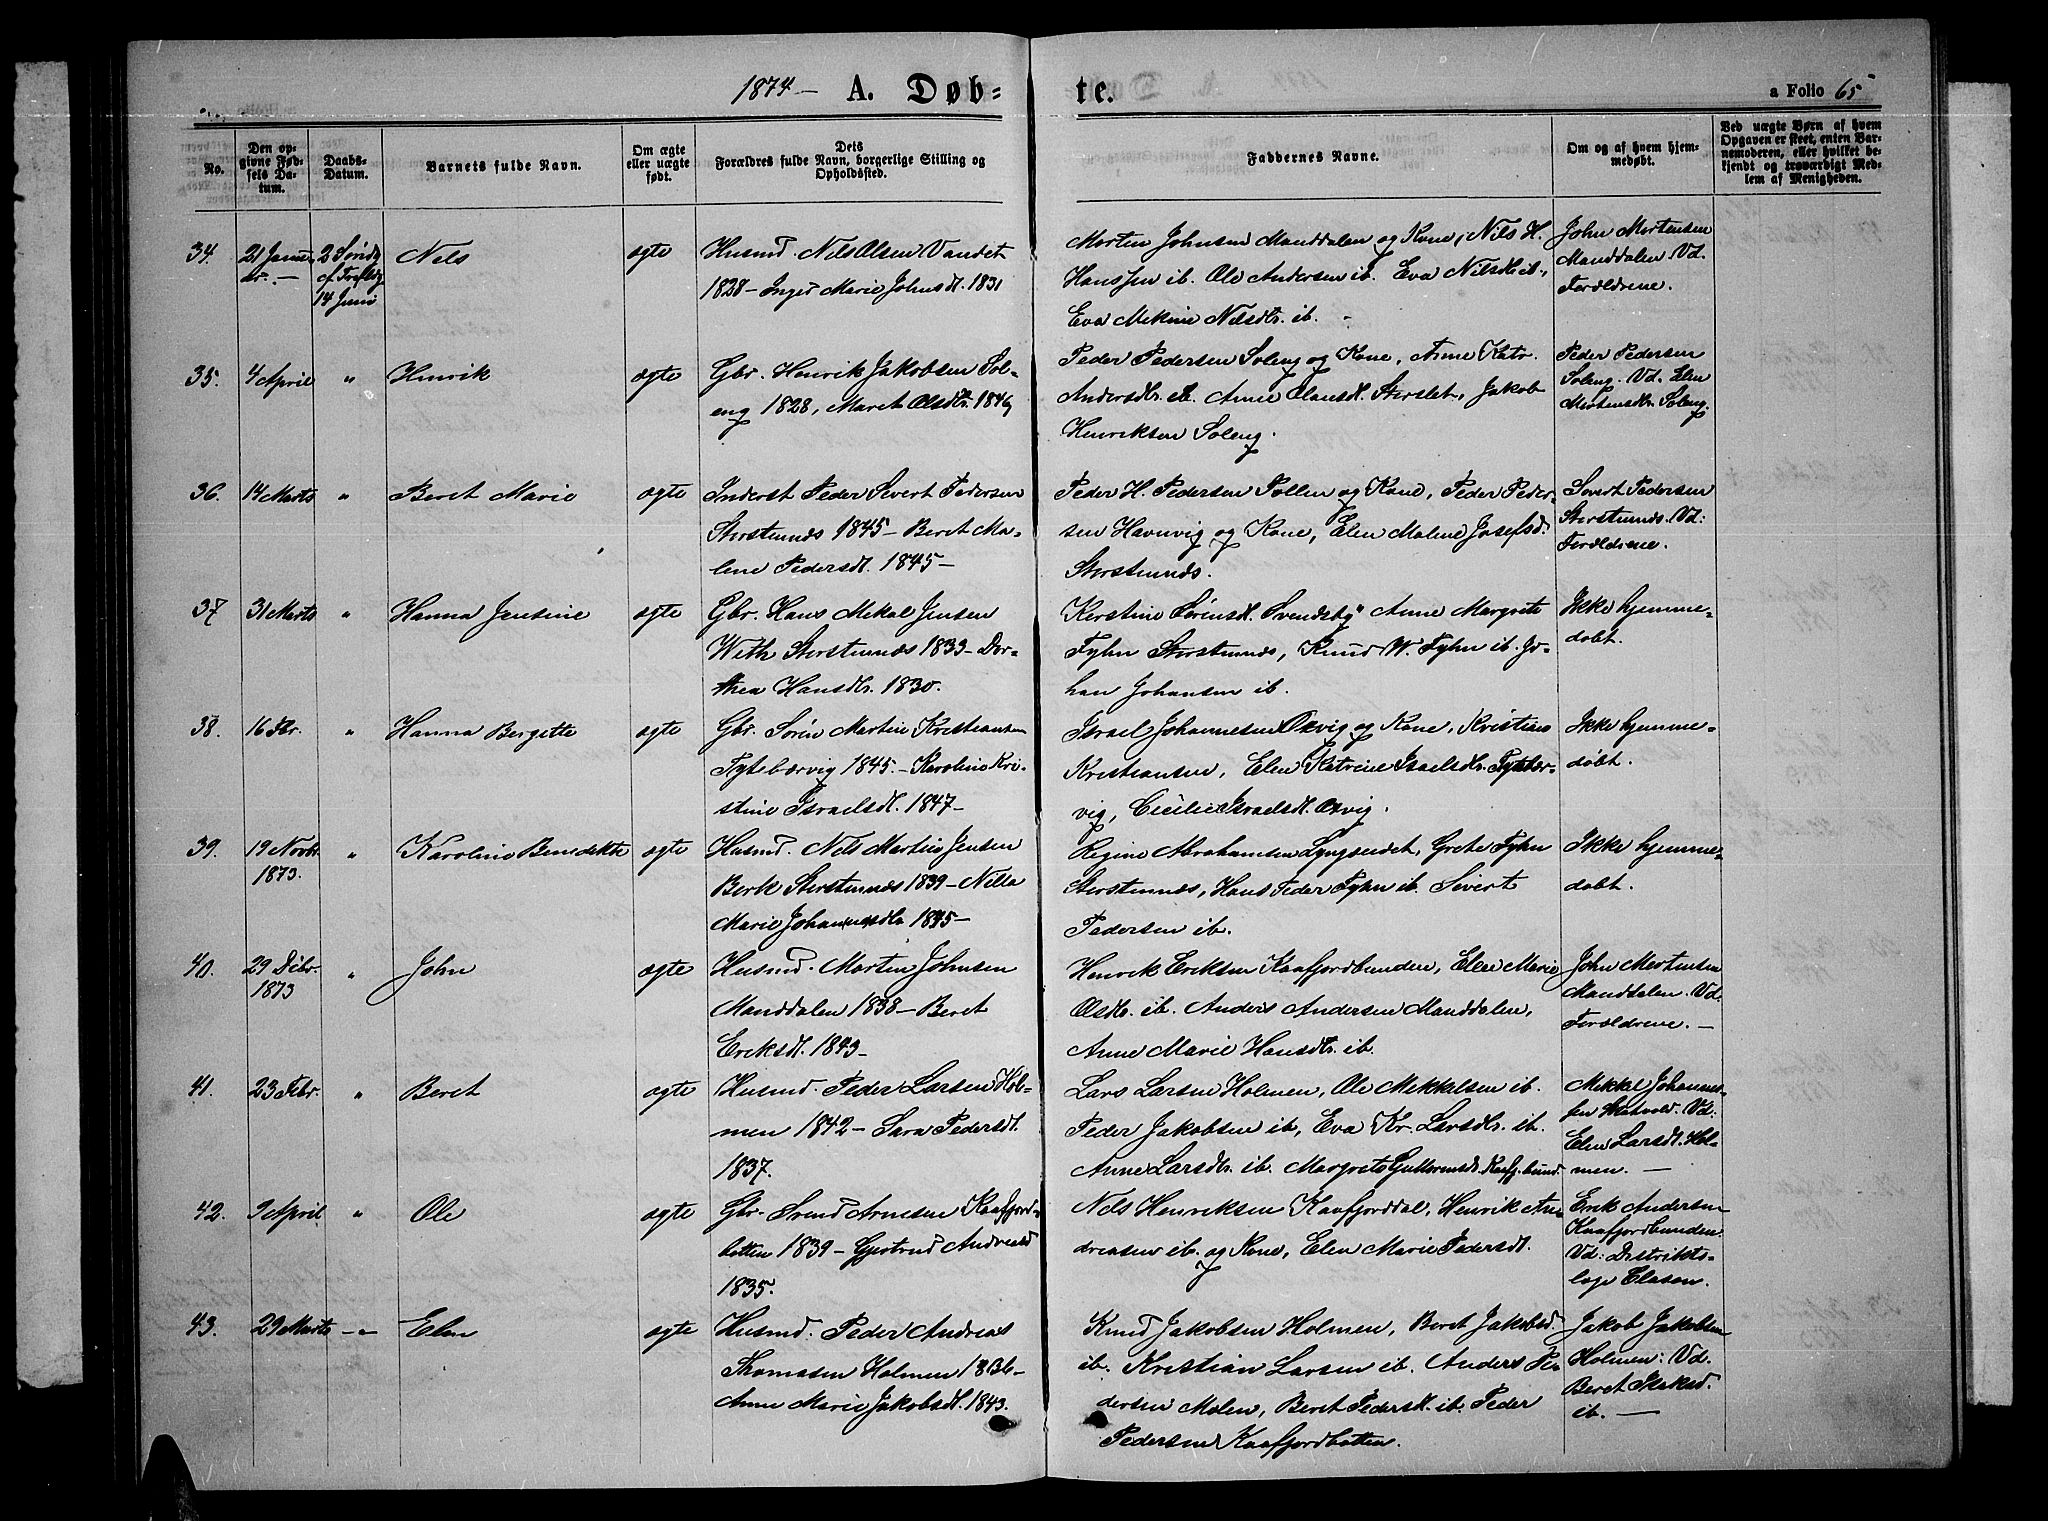 1874 — A. Døb-
te.
a Folio 65
No.
Den op-
givne Fød-
sels Da-
tum.
Daabs-
Datum.
Barnets fulde Navn.
Om ægte
eller uægte
født.
Dets
Forældres fulde Navn, borgerlige Stilling og
Opholdssted.
Faddernes Navne.
Om og af hvem hjem-
medøbt.
Ved uægte Børn af hvem
Opgaven er skeet, enten Bar-
nemoderen, eller hvilket be-
kjendt og troværdigt Med-
lem af Menigheden.
34.
21 Janu-
ar. —
2 Søndg
ef. Trefoldg
14 Juni
Nels
ægte
Husmd. Nels Olsen Vandet
1828 — Inger Marie Johnsdt. 1831
Morten Johnsen Manddalen og Kone, Nils H.
Hanssen ib. Ole Andersen ib. Eva Nilsdt. ib.,
Eva Mekine Nilsdtr. ib. —
John Mortensen
Manddalen Vd.
Forældrene.
35.
4 April
"
Henrik
ægte
Gbr. Henrik Jakobsen Sol-
eng 1828, Maret Olsdtr. 1846
Peder Pedersen Soleng og Kone, Anne Katr.
Andersdtr. ib. Anne Olansdt. Storslet, Jakob
Henriksen Soleng.
Peder Pedersen
Soleng. Vd. Elen
Mortensdtr. Soleng.
36.
14 Marts
"
Beret Marie
ægte
Inderst Peder Sivert Pedersen
Storstennæs 1845 — Beret Ma-
lene Pedersdt. 1845 —
Peder H. Pedersen Pollen og Kone, Peder Peder-
sen Havnvig og Kone, Elen Malene Josefsd.
Storstennæs.
Sivert Pedersen
Storstennæs. Vd:
Forældrene.
37
31 Marts
"
Hanna Jensine
ægte
Gbr. Hans Mekal Jensen
Weth Storstennæs 1833 — Dor-
thea Hansdtr. 1830.
Kerstine Sørensdt. Svendsby" Anne Margrete
Fyhn Storstennæs, Knud W. Fyhn ib. Jo-
han Johansen ib.
Ikke hjemme-
døbt.
38.
16 Fbr.
"
Hanna Bergette
ægte
Gbr. Sörén Martin Kristiansen
Tytebærvig 1845. — Karoline Kri-
stine Israelsdt. 1847 —
Israel Johannesen Oxvig og Kone, Kristian
Kristiansen, Elen Katrine Israelsdtr. Tytebær-
vig, Cicilie Israelsdt. Oxvig.
Ikke hjemme-
døbt.
39.
19 Novbr.
1873.
"
Karoline Benedikte
ægte
Husmd. Nels Martin Jensen
Berk Storstennæs 1839 — Nilla
Marie Johannesdtr 1845 —
Regine Abrahamsen Lyngseidet, Grete Fyhn
Storstennæs, Hans Peder Fyhn ib. Sivert
Pedersen ib.
Ikke hjemme-
døbt.
40.
29 Dcbr.
1873
"
John
ægte
Husmd. Morten Johnsen
Manddalen 1838 — Beret
Eriksdt. 1843 —
Henrik Eriksen Kaafjordbunden, Elen Marie
Olsdtr. ib. Anders Andersen Manddalen,
Anne Marie Hansdtr. ib.
John Mortensen
Manddalen. Vd.
Forældrene. —
41.
23 Febr.
"
Beret
ægte
Husmd. Peder Larsen Hol-
men 1842 — Sara Pedersdt.
1837.
Lars Larsen Holmen, Ole Mekkelsen ib.
Peder Jakobsen ib, Eva Kr. Larsdtr. ib.
Anne Larsdtr. ib. Margrete Guttormsdt. Kaafj.bund.
Mekkel Johannes-
sen Skatvold. Vd:
Elen Larsdt. Hol-
men. —
42.
9 April
"
Ole
ægte
Gbr. Svend Arnesen Kaafjord-
botten 1839 — Gjertrud Andreasd
1835.
Nels Henriksen Kaafjorddal, Henrik An-
dreasen ib. og Kone, Elen Marie Pedersdt.
Erik Andersen
Kaafjordbunden.
Vd: Distrikts-
læge Clasen.
43.
29 Marts
— " —
Elen
ægte
Husmd. Peder Andreas
Thomasen Holmen 1836 —
Anne Marie Jakobsdt. 1843.
Knud Jakobsen Holmen, Beret Jakobsd.
ib. Kristian Larsen ib. Anders Pe-
dersen Molen, Beret Pedersdt. ib. Peder
Pedersen Kaafjordbotten.
Jakob Jakobsen
Holmen: Vd.
Beret Isaksd.
ib. —